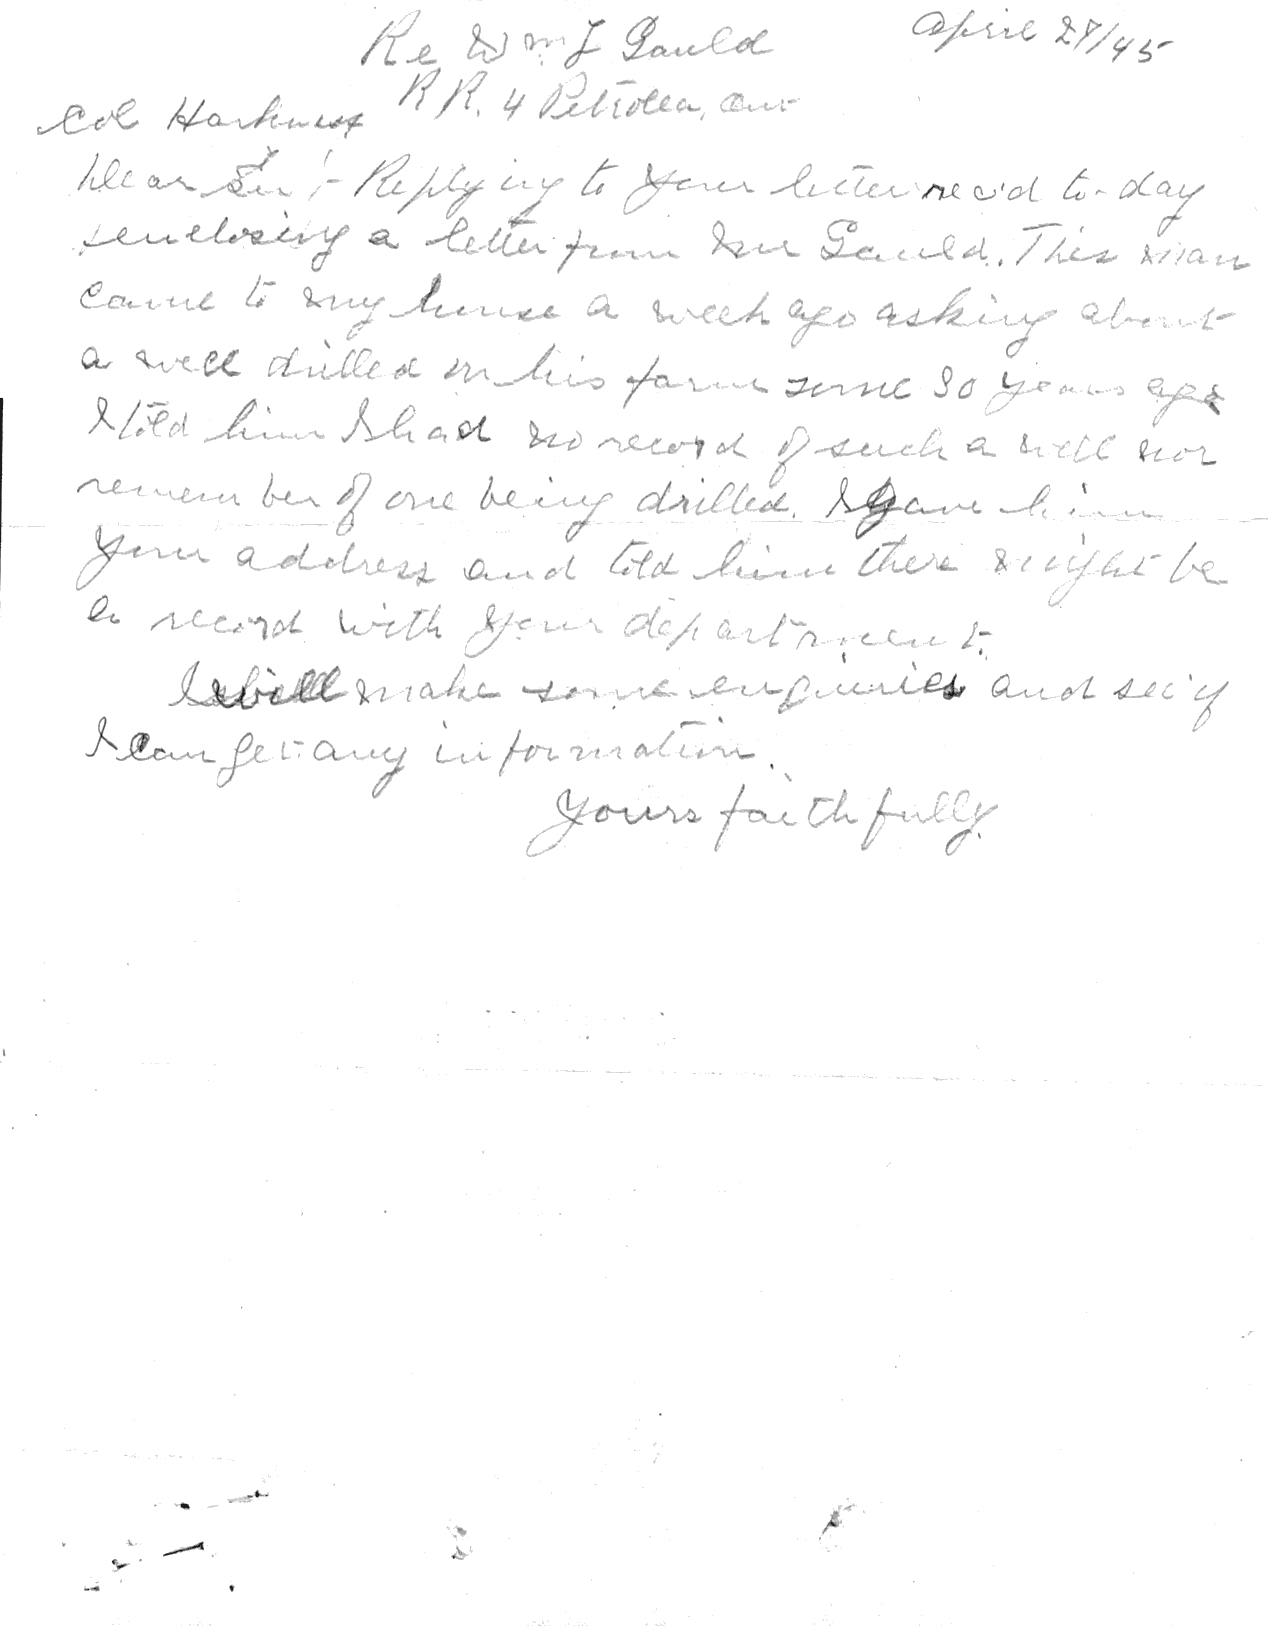 Re Wm J Gauld April 27/45
R R. 4 Petrolea, Ont
Col Harkness
Dear Sir :- Replying to your letter rec'd to-day
enclosing a letter from Mr Gauld. This man
came to my house a week ago asking about
a well drilled on his farm some 30 years ago
I told him I had no record of such a well nor
remember of one being drilled. I gave him
your address and told him there might be
a record with your department.
I will make some enquiries and see if
I can get any information.
Yours faithfully